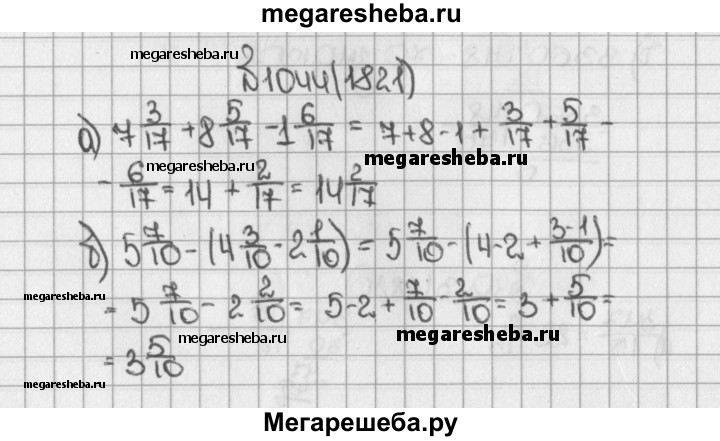 megaresheba.ru
megaresheba.ru megaresheba.ru
№1044(1821)
а) 7 3/17 + 8 5/17 - 1 6/17 = 7+8-1+ 3/17 + 5/17 -
megaresheba.ru megaresheba.ru
- 6/17 = 14 + 2/17 = 14 2/17
megaresheba.ru
б) 5 7/10 - (4 3/10 - 2 1/10) = 5 7/10 - (4-2+ (3-1)/10) =
megaresheba.ru
= 5 7/10 - 2 2/10 = 5-2+ 7/10 - 2/10 = 3 + 5/10 =
megaresheba.ru megaresheba.ru
= 3 5/10
megaresheba.ru megaresheba.ru
Мегарешеба.ру